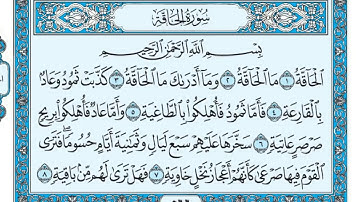 سُورَةُ الْحَاقَّةِ
بِسْمِ اللَّهِ الرَّحْمَٰنِ الرَّحِيمِ
الْحَاقَّةُ ١ مَا الْحَاقَّةُ ٢ وَمَا أَدْرَاكَ مَا الْحَاقَّةُ ٣ كَذَّبَتْ ثَمُودُ وَعَادٌ
بِالْقَارِعَةِ ٤ فَأَمَّا ثَمُودُ فَأُهْلِكُوا بِالطَّاغِيَةِ ٥ وَأَمَّا عَادٌ فَأُهْلِكُوا بِرِيحٍ
صَرْصَرٍ عَاتِيَةٍ ٦ سَخَّرَهَا عَلَيْهِمْ سَبْعَ لَيَالٍ وَثَمَانِيَةَ أَيَّامٍ حُسُومًا فَتَرَى
الْقَوْمَ فِيهَا صَرْعَىٰ كَأَنَّهُمْ أَعْجَازُ نَخْلٍ خَاوِيَةٍ ٧ فَهَلْ تَرَىٰ لَهُمْ مِنْ بَاقِيَةٍ ٨